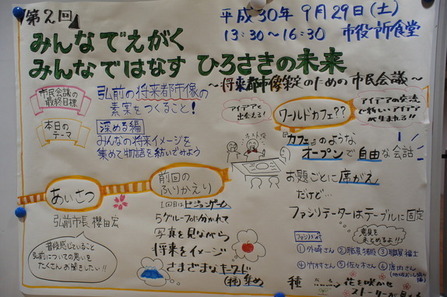 第2回
平成30年 9月29日(土)
13:30~16:30 市役所食堂
みんなでえがく
みんなではなす ひろさきの未来
~将来都市像策定のための市民会議~
市民会議の
最終目標
弘前の将来都市像の
素案をつくること!
本日の
テーマ
深める編
みんなの将来イメージを
集めて物語を紡いでみよう
アイデアと
出会える!
ワールドカフェ??
アイデアの交流
で新しいアイデア
が生まれる!!
カフェのような
オープンで自由な会話
お題ごとに席がえ
だけど…
ファシリテーターはテーブルに固定
あいさつ
弘前市長 櫻田宏
普段感じていること
弘前についての思いを
たくさんお聞きしたい!!
前回の
ふりかえり
1回目はビジョンゲーム
5グループに分かれて
写真を見ながら
将来をイメージ
さまざまなキーワード
集め
意見を
まとめるよ!!
①外崎さん
④竹内さん
⑤佐々木さん
種
花を咲かせ